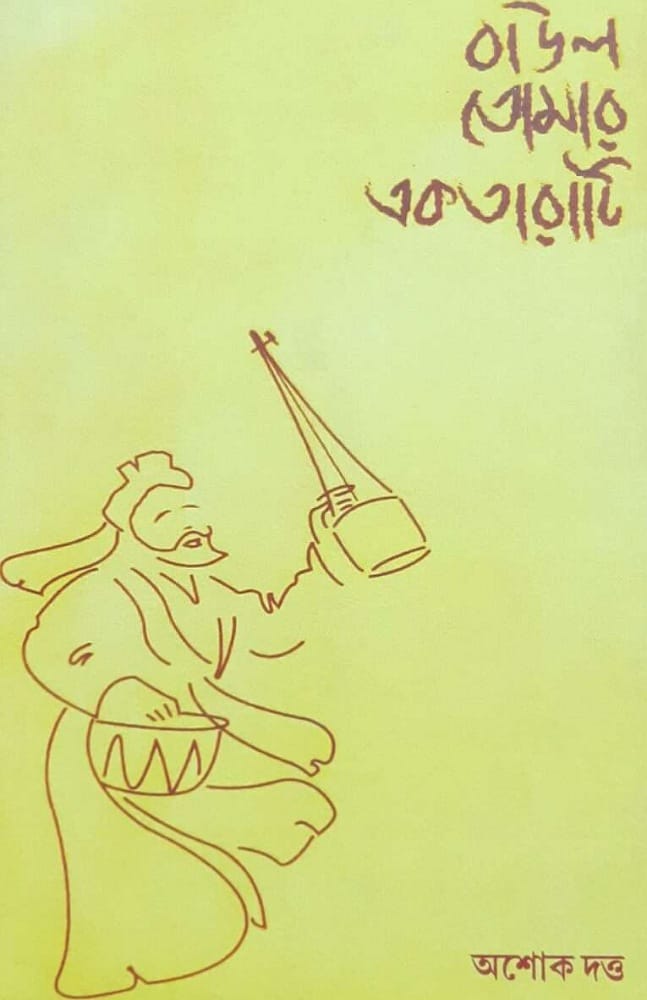 বাউল
তোমার
একতারাটি
অশোক দত্ত